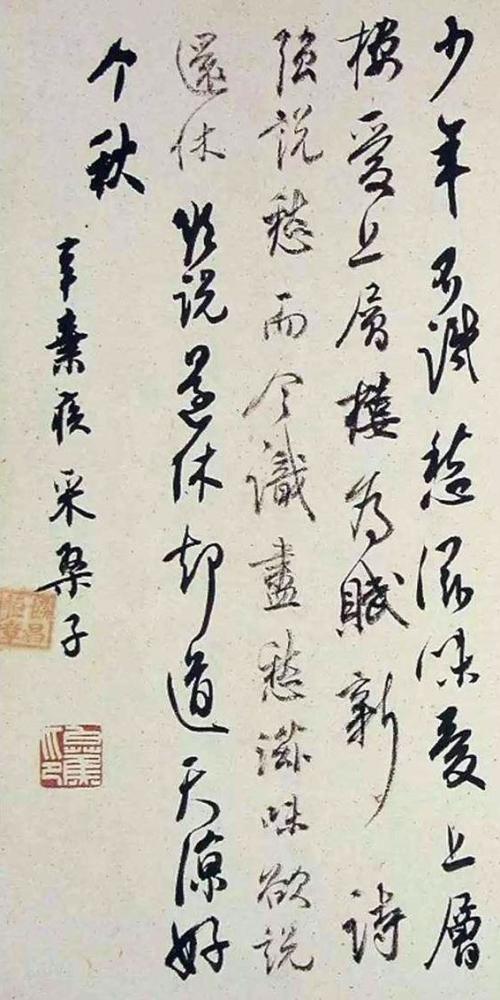 少年不識愁滋味愛上層
樓愛上層樓為賦新詩
強説愁而今識盡愁滋味欲説
還休欲説還休却道天凉好
个秋
辛棄疾采桑子